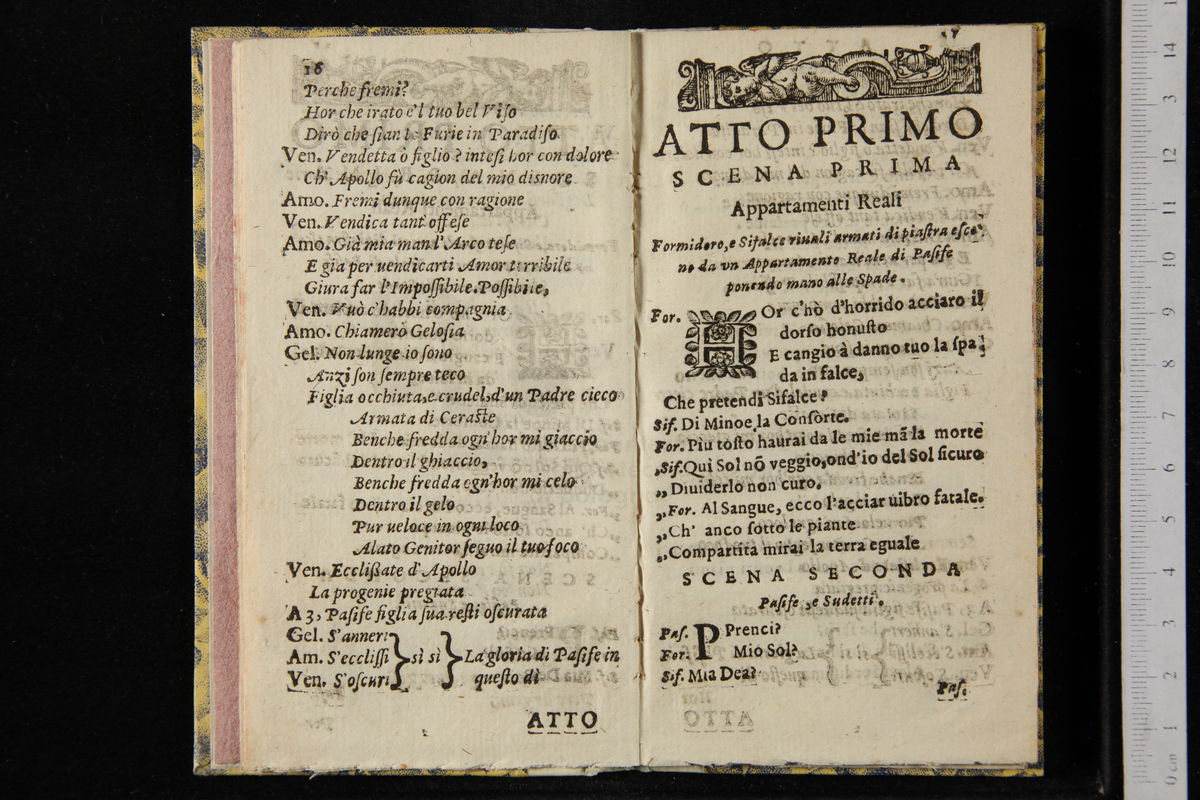 16
Perche fremi?
Hor che irato e'l tuo bel Viso
Dirò che sian le Furie in Paradiso
Ven. Vendetta ò figlio? intesi hor con dolore
Ch' Apollo fù cagion del mio disnore
Amo. Fremi dunque con ragione
Ven. Vendica tant' offese
Amo. Già mia man l'Arco tese
E gia per uendicarti Amor terribile
Giura far l'Impossibile, Possibile,
Ven. Vuò c'habbi compagnia
Amo. Chiamerò Gelosia
Gel. Non lunge io sono
Anzi son sempre teco
Figlia occhiuta, e crudel, d'un Padre cieco
Armata di Ceraste
Benche fredda ogn'hor mi giaccio
Dentro il ghiaccio,
Benche fredda ogn'hor mi celo
Dentro il gelo
Pur ueloce in ogni loco
Alato Genitor seguo il tuo foco
Ven. Ecclissate d'Apollo
La progenie pregiata
A 3, Pasife figlia sua resti oscurata
Gel. S'anneri
Am. S'ecclissi } sì sì } La gloria di Pasife in
Ven. S'oscuri questo dì
ATTO
17
ATTO PRIMO
SCENA PRIMA
Appartamenti Reali
Formidoro, e Sifalce riuali armati di piastra esco-
no da vn Appartamento Reale di Pasife
ponendo mano alle Spade.
For. HOr c'hò d'horrido acciaro il
dorso honusto
E cangio à danno tuo la spa-
da in falce,
Che pretendi Sifalce?
Sif. Di Minoe la Consorte.
For. Più tosto haurai da le mie mã la morte
„Sif. Qui Sol nõ veggio, ond'io del Sol sicuro
„ Diuiderlo non curo.
„For. Al Sangue, ecco l'acciar uibro fatale.
„Ch' anco sotto le piante
„Compartita mirai la terra eguale
SCENA SECONDA
Pasife, e Sudetti.
Pas. PPrenci?
For. Mio Sol?
Sif. Mia Dea?
Pas.
ATTO
0 cm 1 2 3 4 5 6 7 8 9 10 11 12 13 14